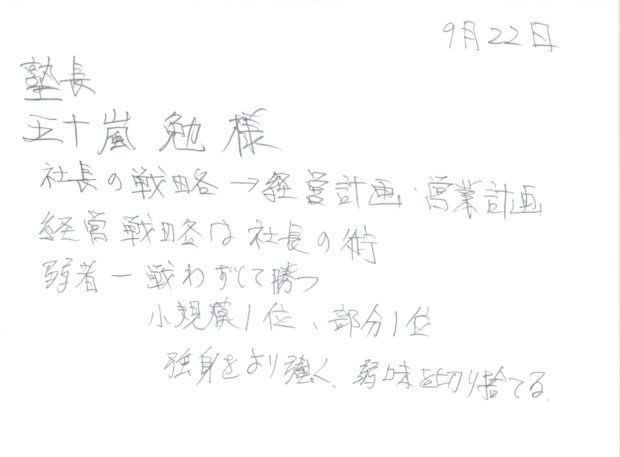 9月22日
塾長
五十嵐 勉 様
社長の戦略→経営計画、営業計画
経営戦略は社長の術
弱者ー戦わずして勝つ
小規模1位、部分1位
強く、弱味を切り捨てる。